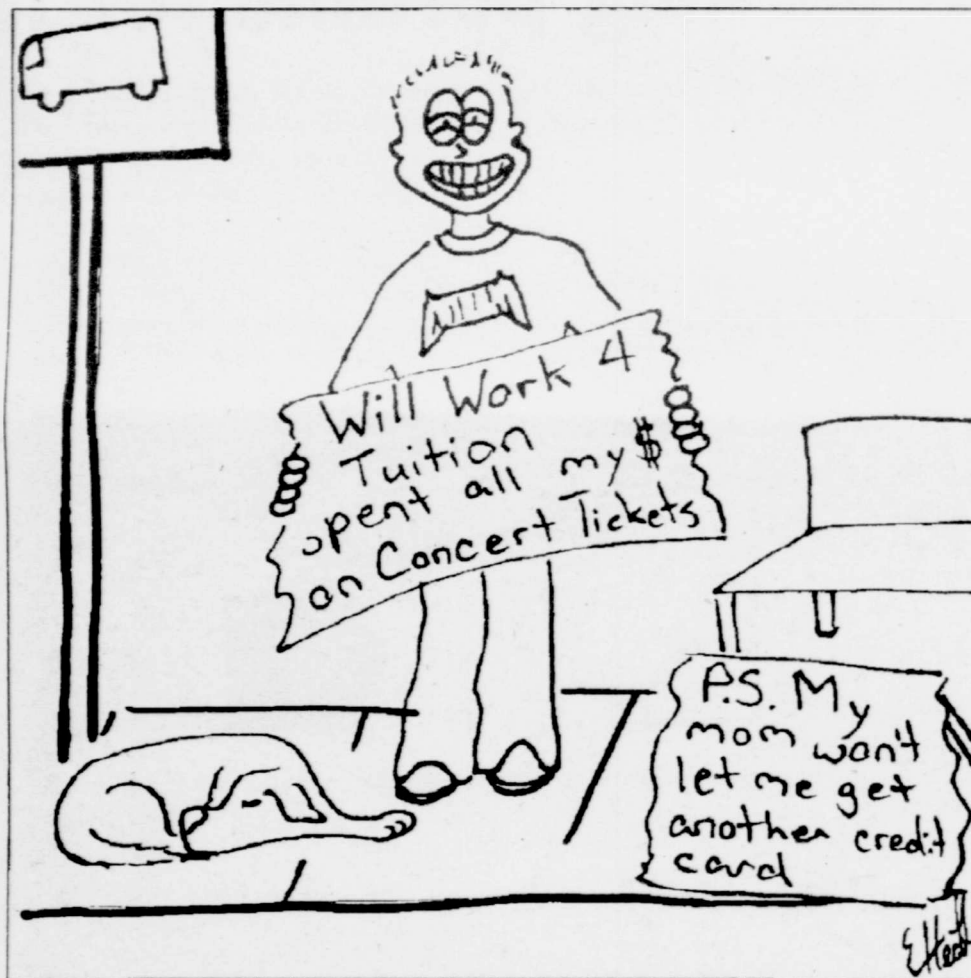 Will Work 4
Tuition
spent all my $
on Concert Tickets
P.S. My
mom won't
let me get
another credit
card